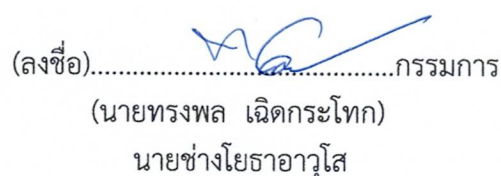 (ลงชื่อ)......................................................กรรมการ
(นายทรงพล เฉิดกระโทก)
นายช่างโยธาอาวุโส